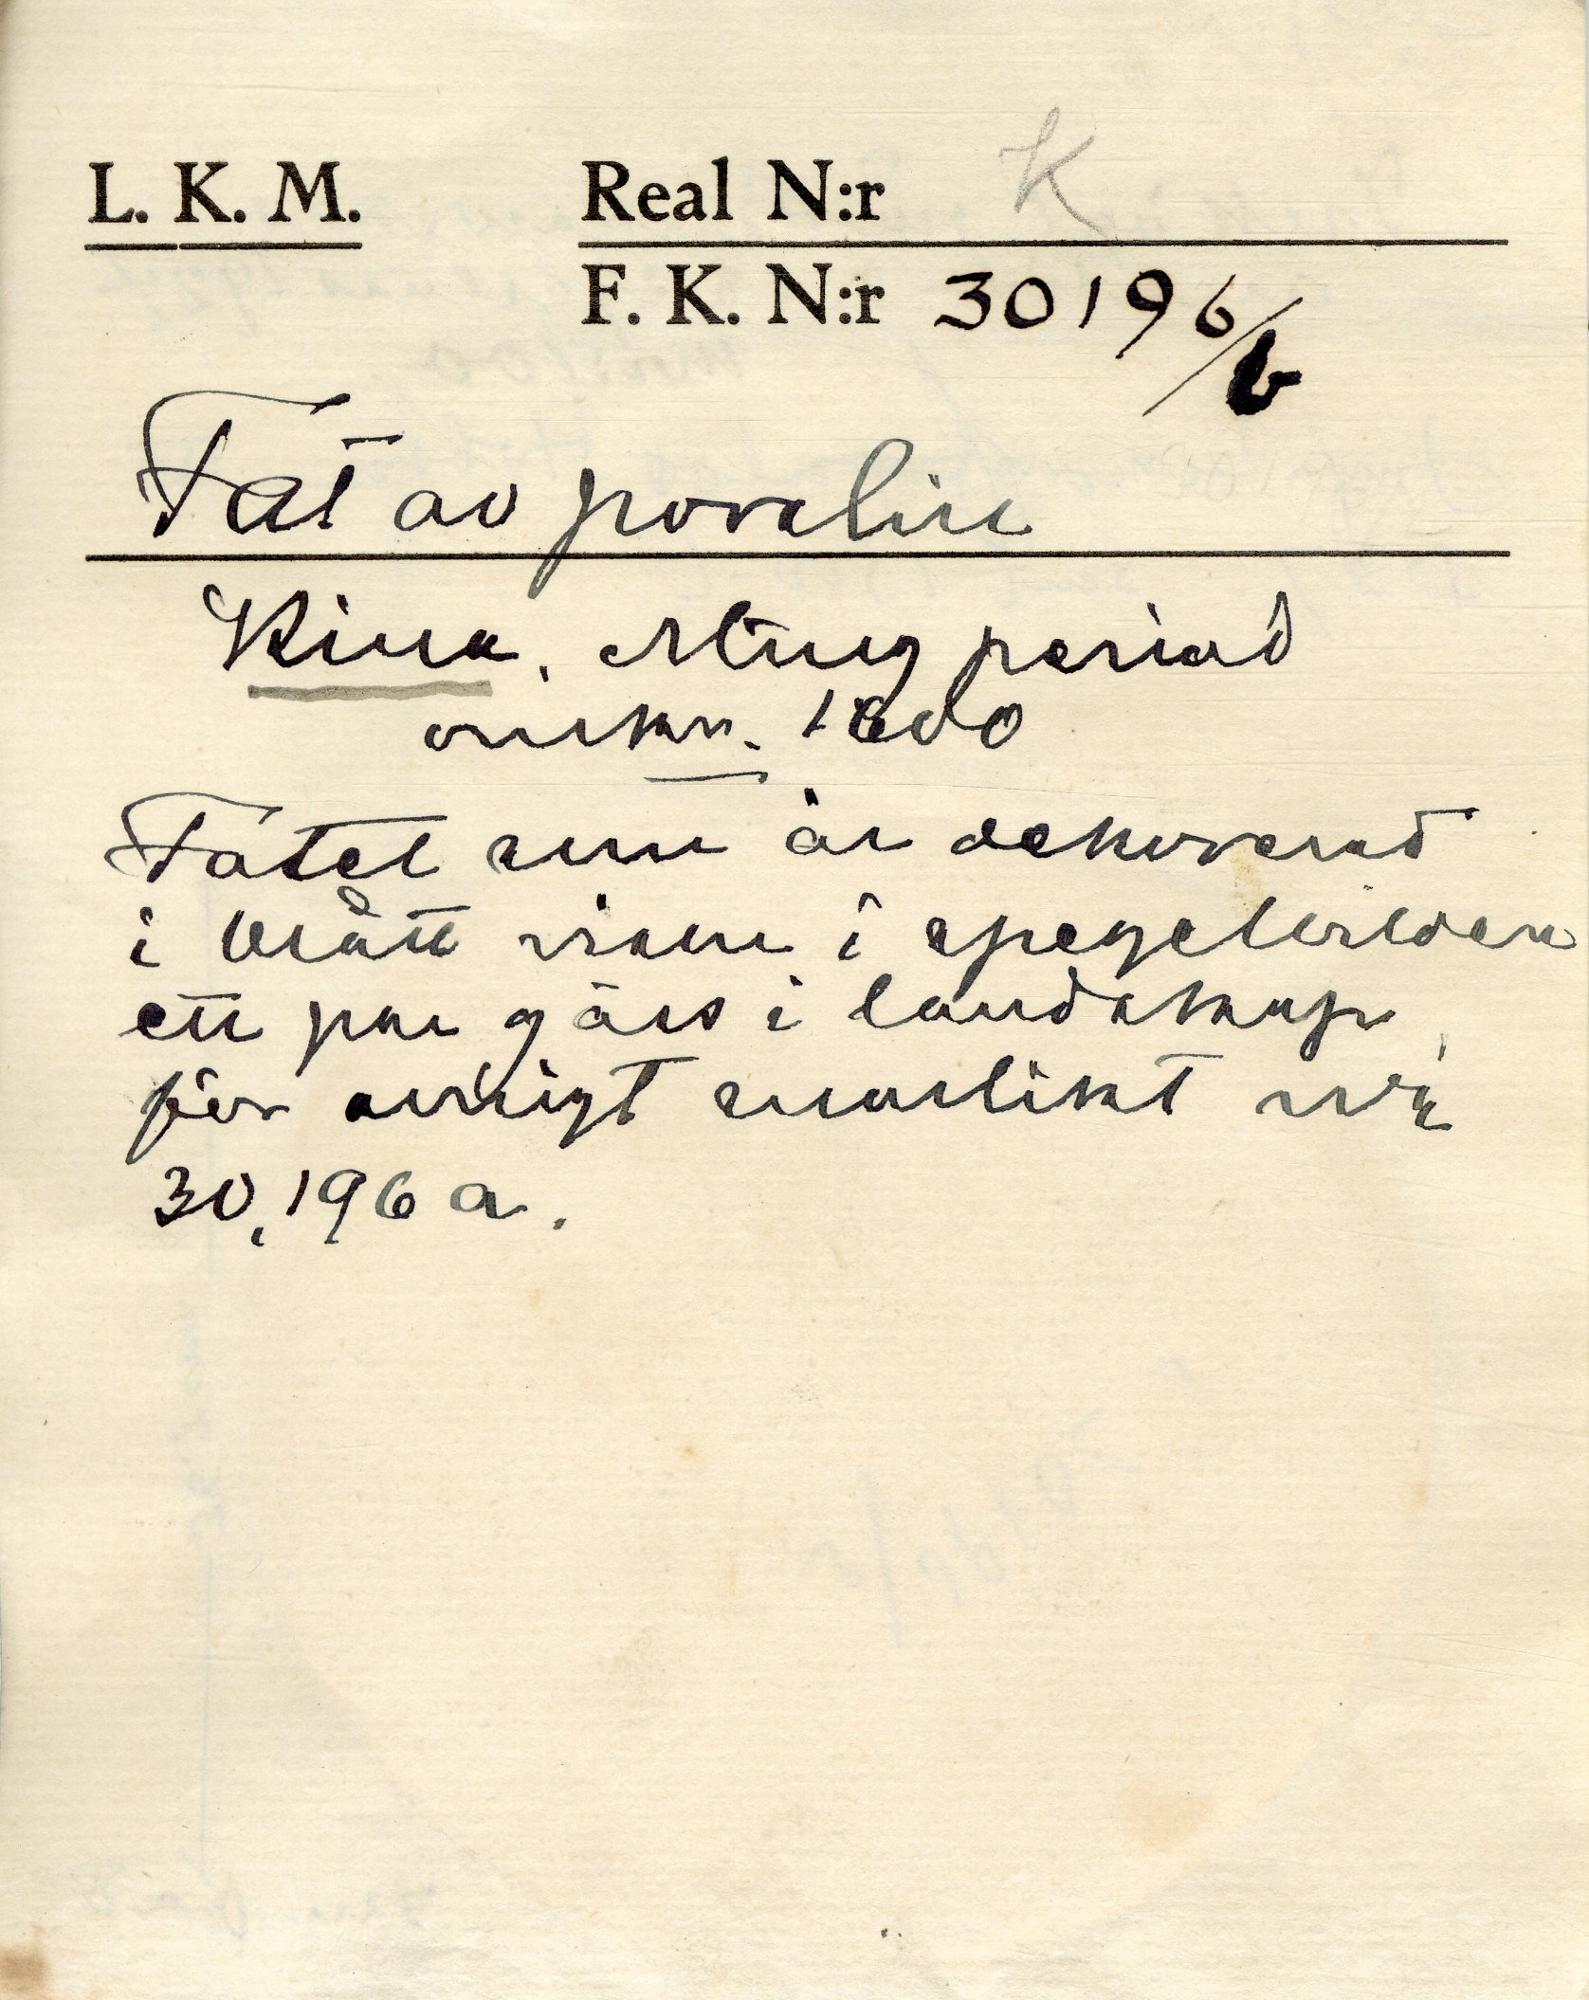 L. K. M. Real N:r K
F. K. N:r 30196/b
Fat av porslin
Kina. Ming period
omkr. 1600
Fatet som är dekorerat
i blått visar i spegelbilden
ett par gäss i landskap,
för övrigt snarlikt
30,196 a.